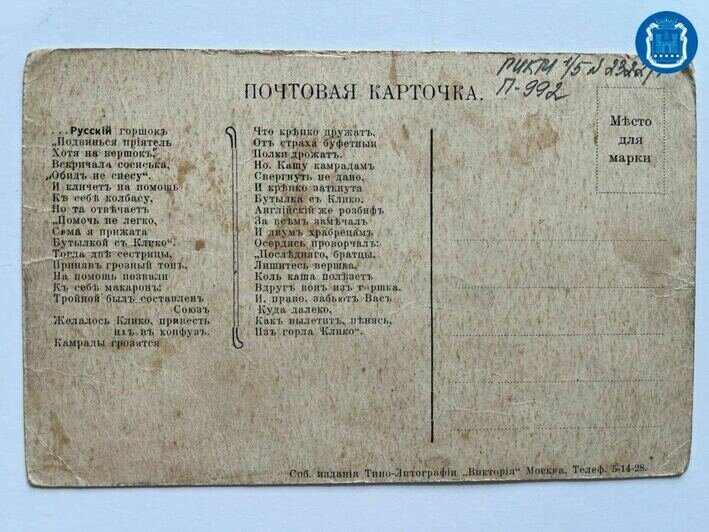 РИКМ 1/5 № 2322/1
П-992
ПОЧТОВАЯ КАРТОЧКА.
Мѣсто
для
марки
...Русскій горшокъ
„Подвинься пріятель
Хотя на вершокъ,"
Вскричала сосиська,
„Обидъ не снесу".
И кличетъ на помощь
Къ себѣ колбасу,
Но та отвѣчаетъ
„Помочь не легко,
Сама я прижата
Бутылкой съ Клико".
Тогда двѣ сестрицы,
Принявъ грозный тонъ,
На помощь позвали
Къ себѣ макаронъ:
Тройной былъ составленъ
Союзъ
Желалось Клико, привесть
ихъ въ конфузъ.
Камрады грозятся
Что крѣпко дружатъ,
Отъ страха буфетныя
Полки дрожатъ.
Но. Кашу камрадамъ
Свергнуть не дано,
И крѣпко заткнута
Бутылка съ Клико,
Англійскій же розбифъ
За всѣмъ замѣчалъ
И двумъ храбрецамъ
Осердясь проворчалъ:
„Послѣдняго, братцы,
Лишитесь вершка,
Коль каша полѣзетъ
Вдругъ вонъ изъ горшка.
И, право, забьютъ Васъ
Куда далеко,
Какъ вылетитъ, пѣнясь,
Изъ горла Клико".
Соб. изданія Типо-Литографіи „Викторія" Москва, Телеф. 5-14-28.